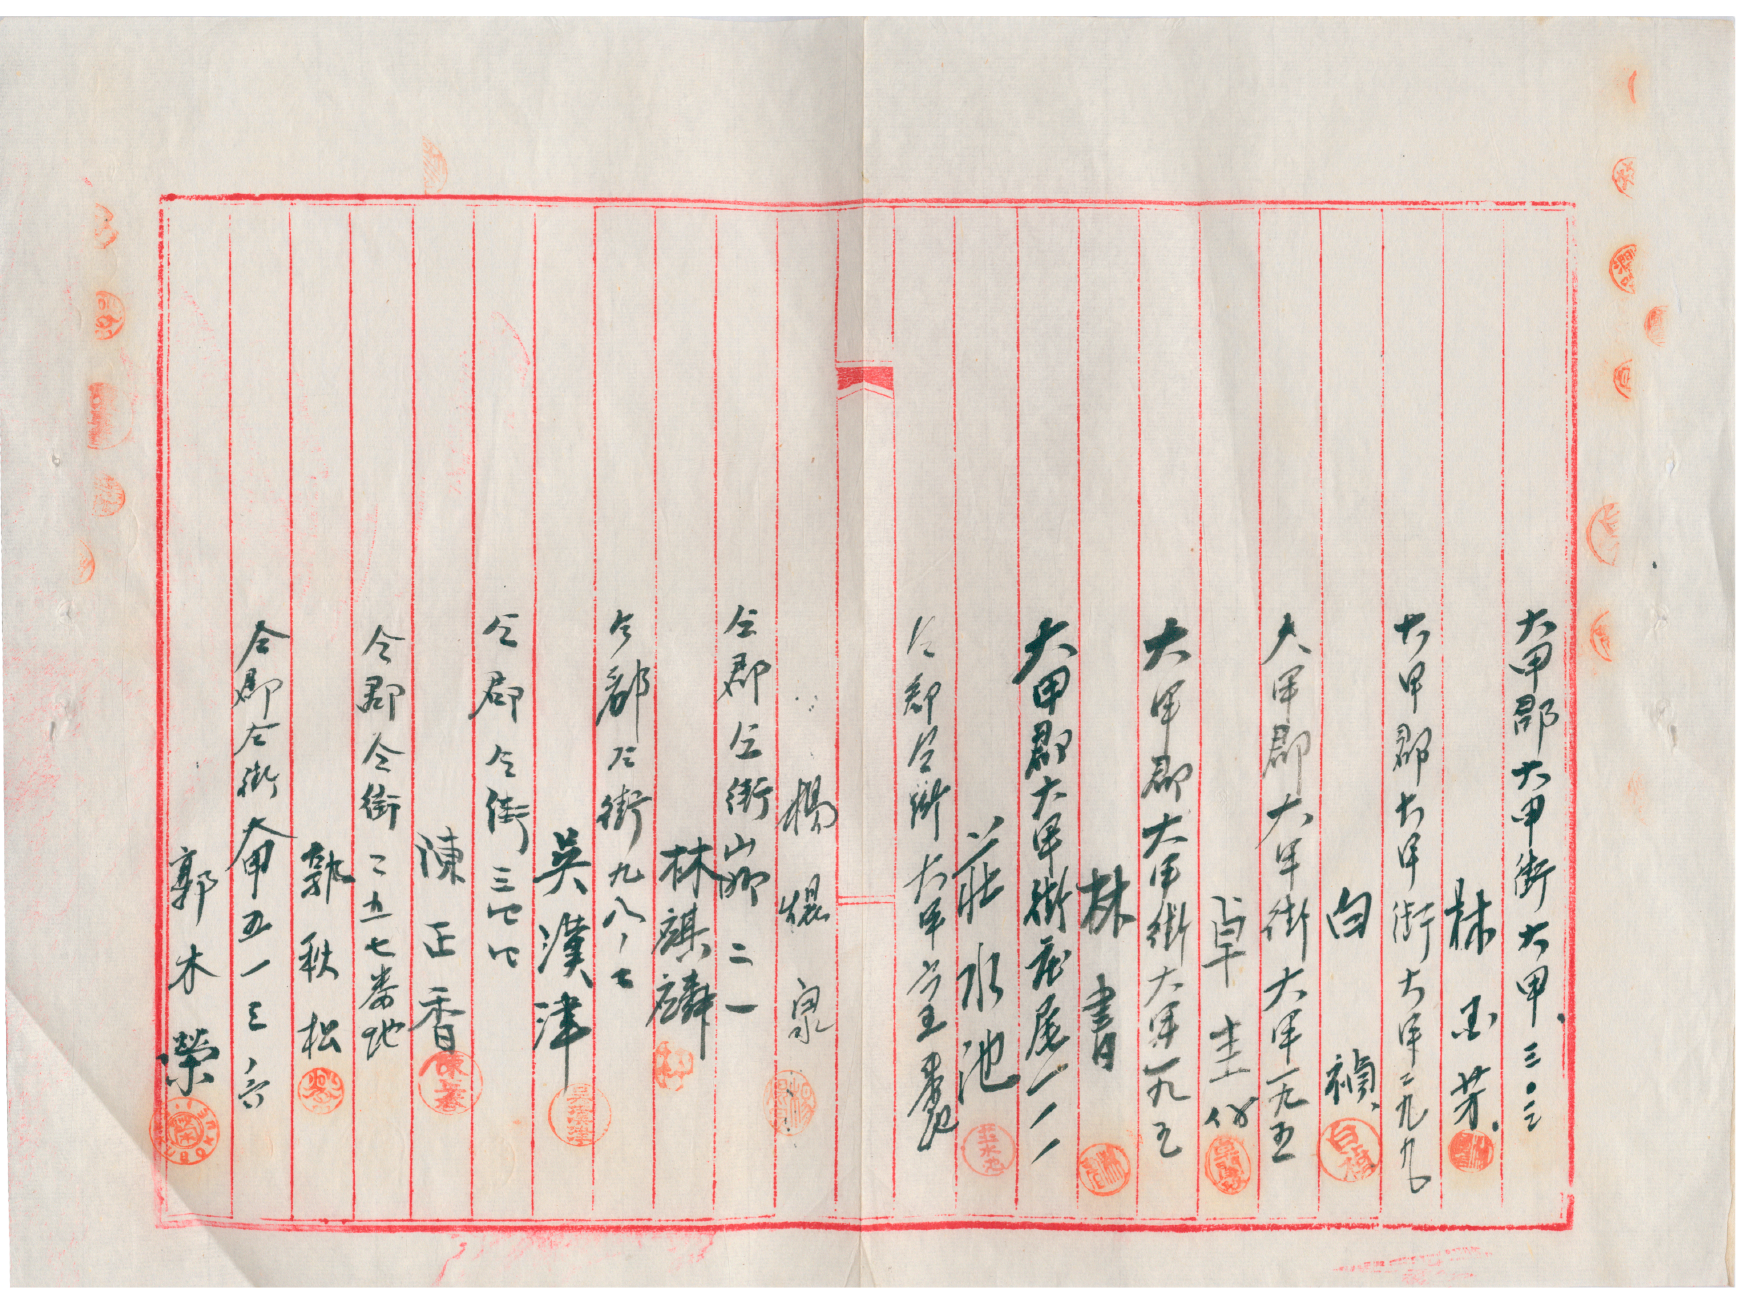 大甲郡大甲街大甲、三〇三
林 墨 芳
大甲郡大甲街大甲二九九
白 禎
大甲郡大甲街大甲一九五
卓 圭 份
大甲郡大甲街大甲一九五
林 書
大甲郡大甲街庄尾一一一
莊水池
仝郡仝街大甲 番地
楊 焜 泉
仝郡仝街山脚二一
林麒麟
仝郡仝街九八ノ七
吳漢津
仝郡仝街三四四
陳正香
仝郡仝街二五七番地
郭秋松
仝郡仝街大甲五一三ノ六
郭木榮